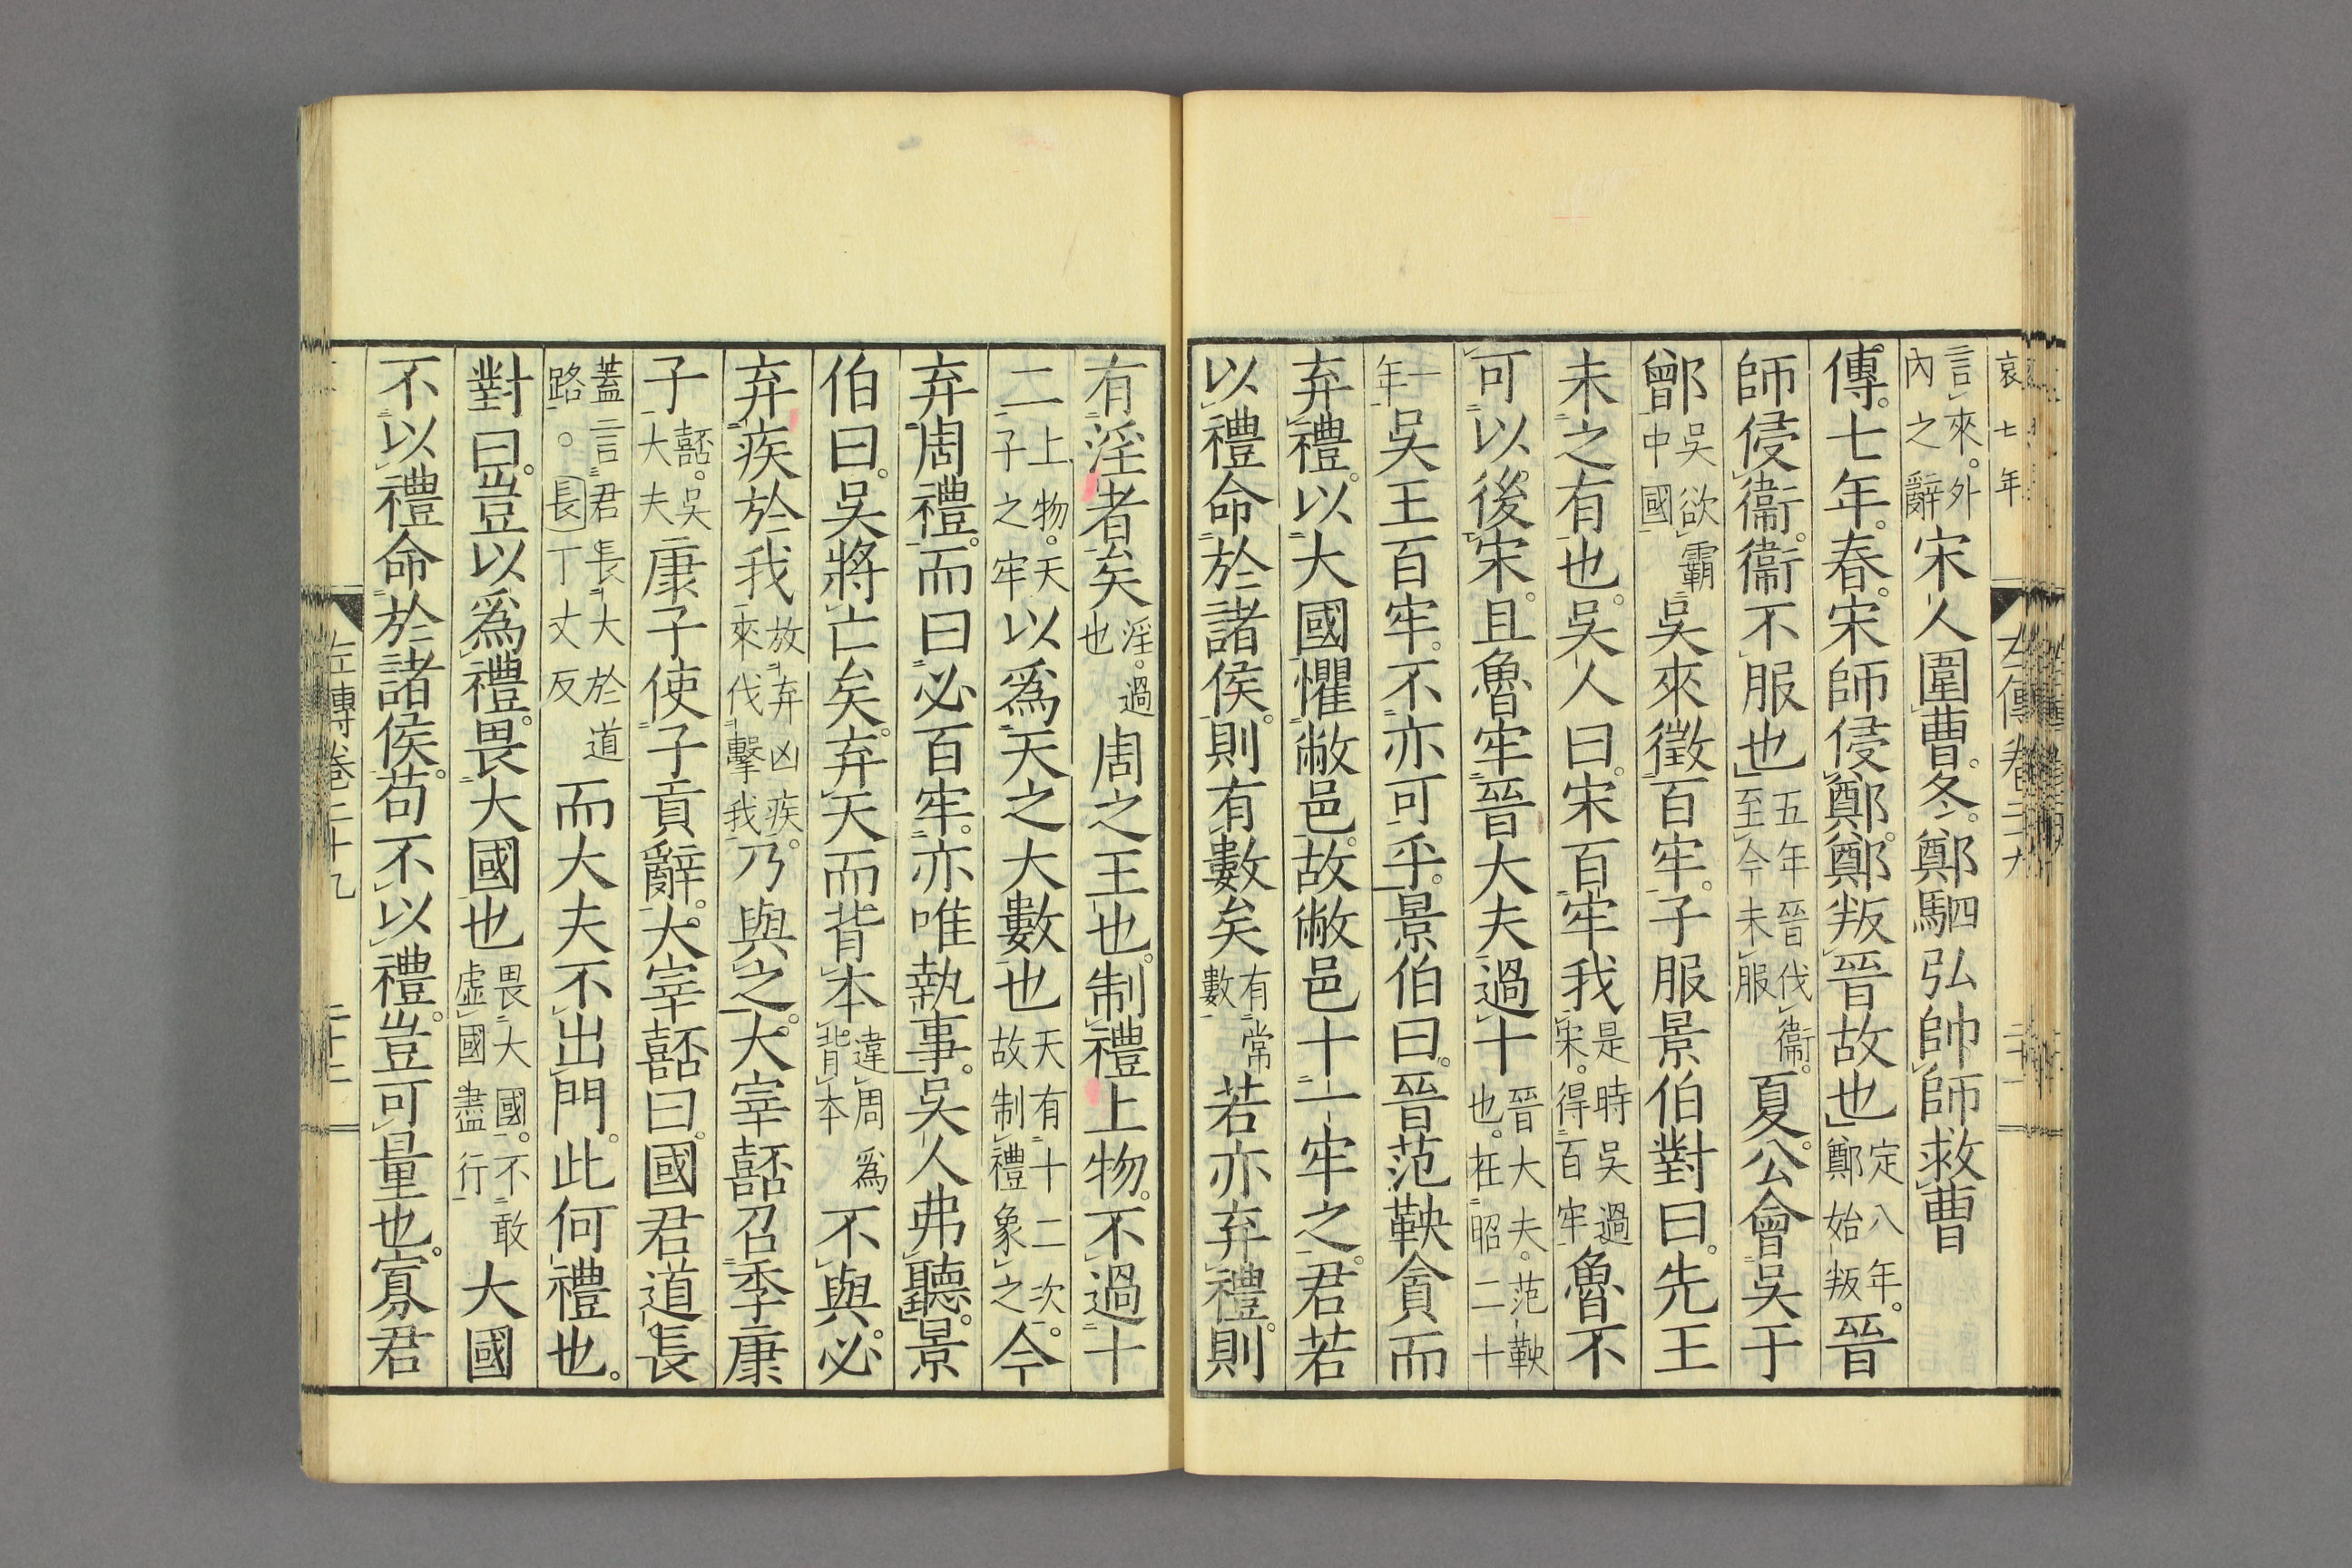 哀七年 左傳卷二十九 二十一
言來。外內之辭宋人圍曹。冬。鄭駟弘帥師救曹
傳。七年。春。宋師侵鄭。鄭叛晉故也定八年。鄭始叛晉
師侵衞。衞不服也五年晉伐衞。至今未服夏。公會吳于
鄫吳欲霸中國吳來徵百牢。子服景伯對曰。先王
未之有也。吳人曰。宋百牢我是時吳過宋。得百牢魯不
可以後宋。且魯牢晉大夫過十晉大夫。范鞅也。在昭二十
一年吳王百牢。不亦可乎。景伯曰。晉范鞅貪而
弃禮。以大國懼敝邑。故敝邑十一牢之。君若
以禮命於諸侯。則有數矣有常數若亦弃禮。則
有淫者矣淫。過也周之王也。制禮上物。不過十
二上物。天子之牢以爲天之大數也天有十二次。故制禮象之今
弃周禮。而曰必百牢。亦唯執事。吳人弗聽。景
伯曰。吳將亡矣。弃天而背本違周爲背本不與。必
弃疾於我放弃凶疾。來伐擊我乃與之。大宰嚭召季康
子嚭。吳大夫康子使子貢辭。大宰嚭曰。國君道長
蓋言君長大於道路。。長丁丈反而大夫不出門。此何禮也。
對曰。豈以爲禮。畏大國也畏大國。不敢虛國盡行大國
不以禮命於諸侯。苟不以禮。豈可量也。寡君
左傳卷二十九 二十二